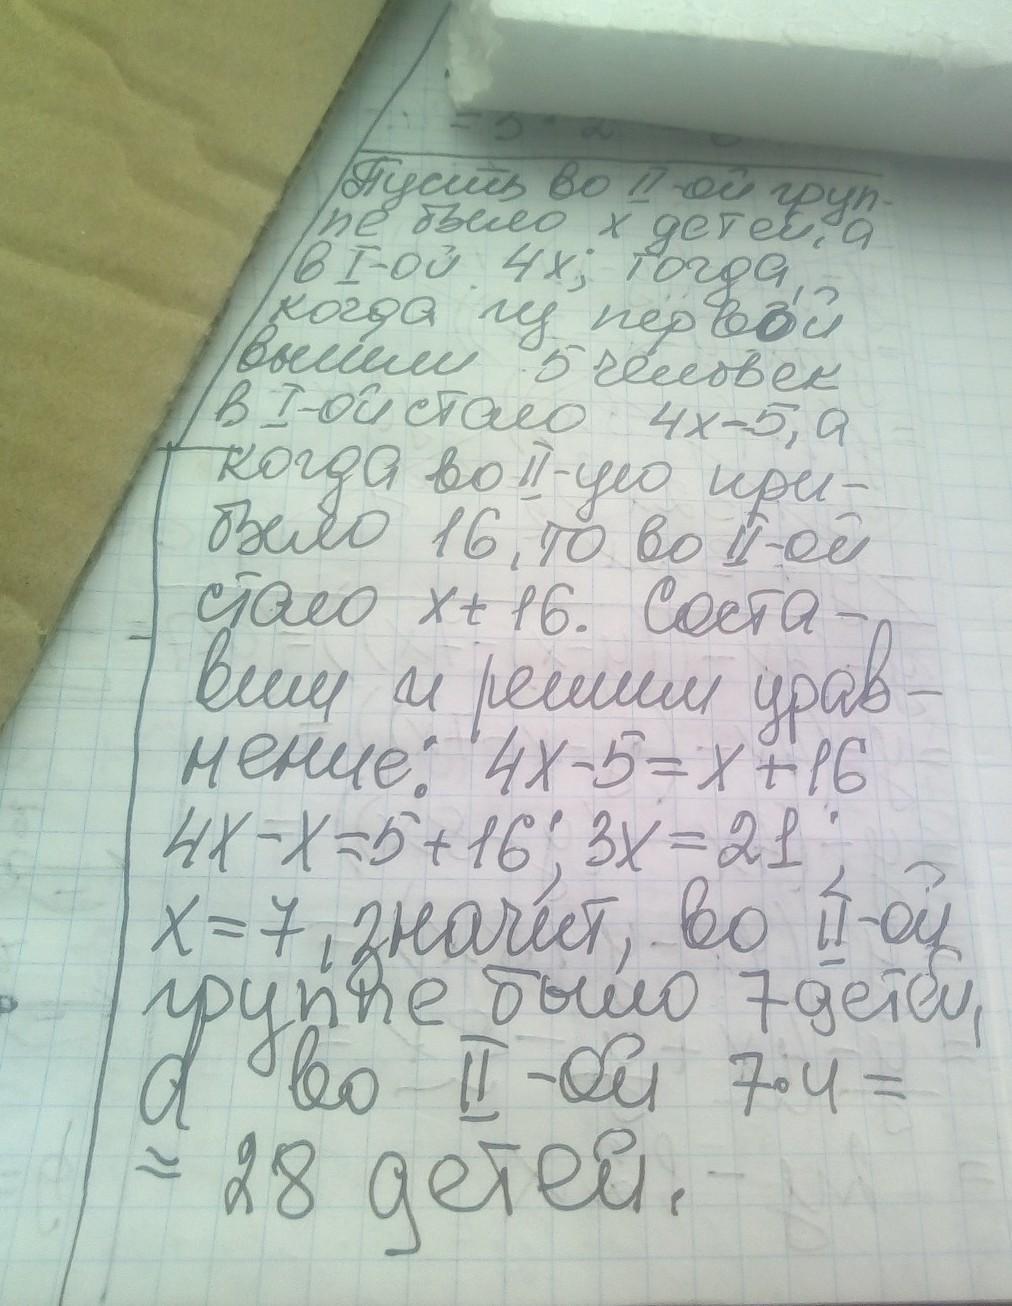 = 5 · 2
Пусть во II-ой груп-
пе было x детей, а
в I-ой 4x; тогда,
когда из первой
вышли 5 человек
в I-ой стало 4x-5, а
когда во II-ую при-
было 16, то во II-ой
стало x+16. Соста-
вим и решим урав-
нение: 4x-5=x+16
4x-x=5+16; 3x=21;
x=7, значит, во II-ой
группе было 7 детей,
а во II-ой 7·4=
= 28 детей.